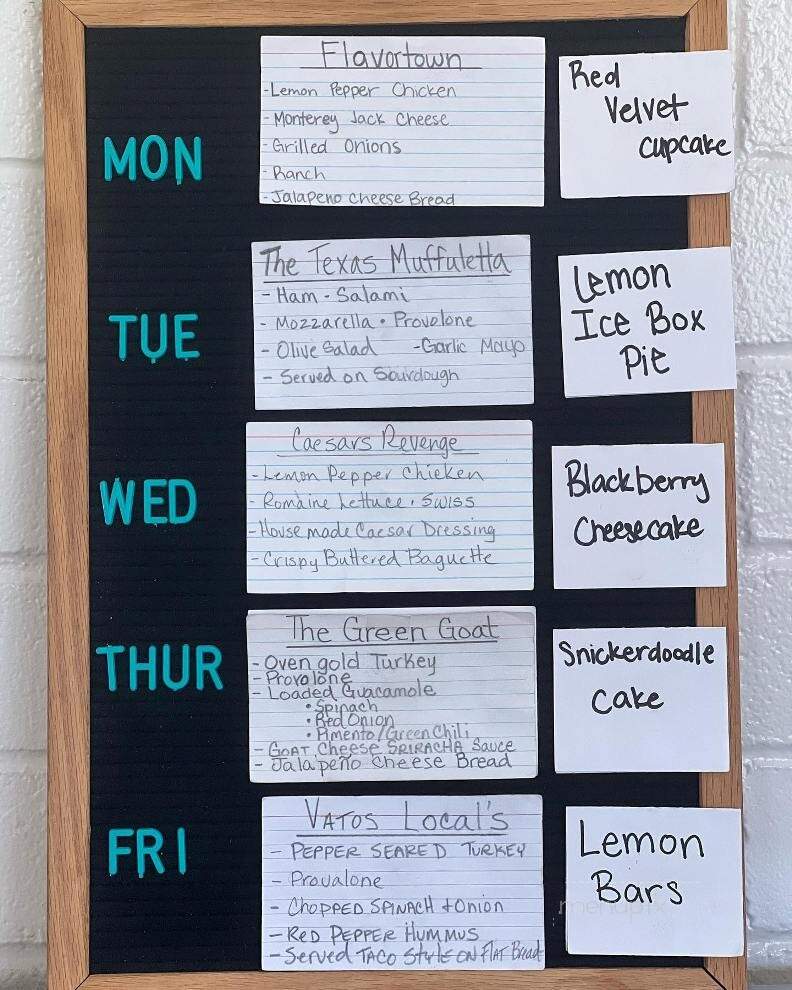 MON
Flavortown
- Lemon Pepper Chicken
- Monterey Jack Cheese
- Grilled Onions
- Ranch
- Jalapeno cheese Bread
Red
Velvet
cupcake
TUE
The Texas Muffuletta
- Ham - Salami
- Mozzarella • Provolone
- Olive Salad - Garlic Mayo
- Served on Sourdough
Lemon
Ice Box
Pie
WED
Caesars Revenge
- Lemon Pepper Chicken
- Romaine Lettuce • Swiss
- House made Caesar Dressing
- Crispy Buttered Baguette
Blackberry
Cheesecake
THUR
The Green Goat
- Oven gold Turkey
- Provolone
- Loaded Guacamole
• Spinach
• Red Onion
• Pimento/Green Chili
- Goat Cheese SRIRACHA Sauce
- Jalapeño Cheese Bread
Snickerdoodle
Cake
FRI
VATOS LOCAL'S
- PEPPER SEARED TURKEY
- Provalone
- CHOPPED SPINACH + Onion
- RED PEPPER HUMMUS
- Served TACO StyLE ON FLAT Bread
Lemon
Bars